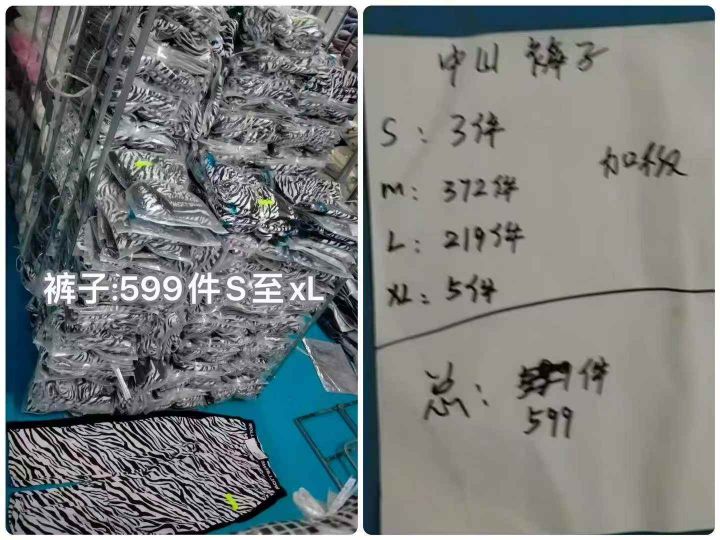 裤子:599件S至xL
中山 裤子
S：3件
M：372件
加秋
L：219件
XL：5件
总：件
599